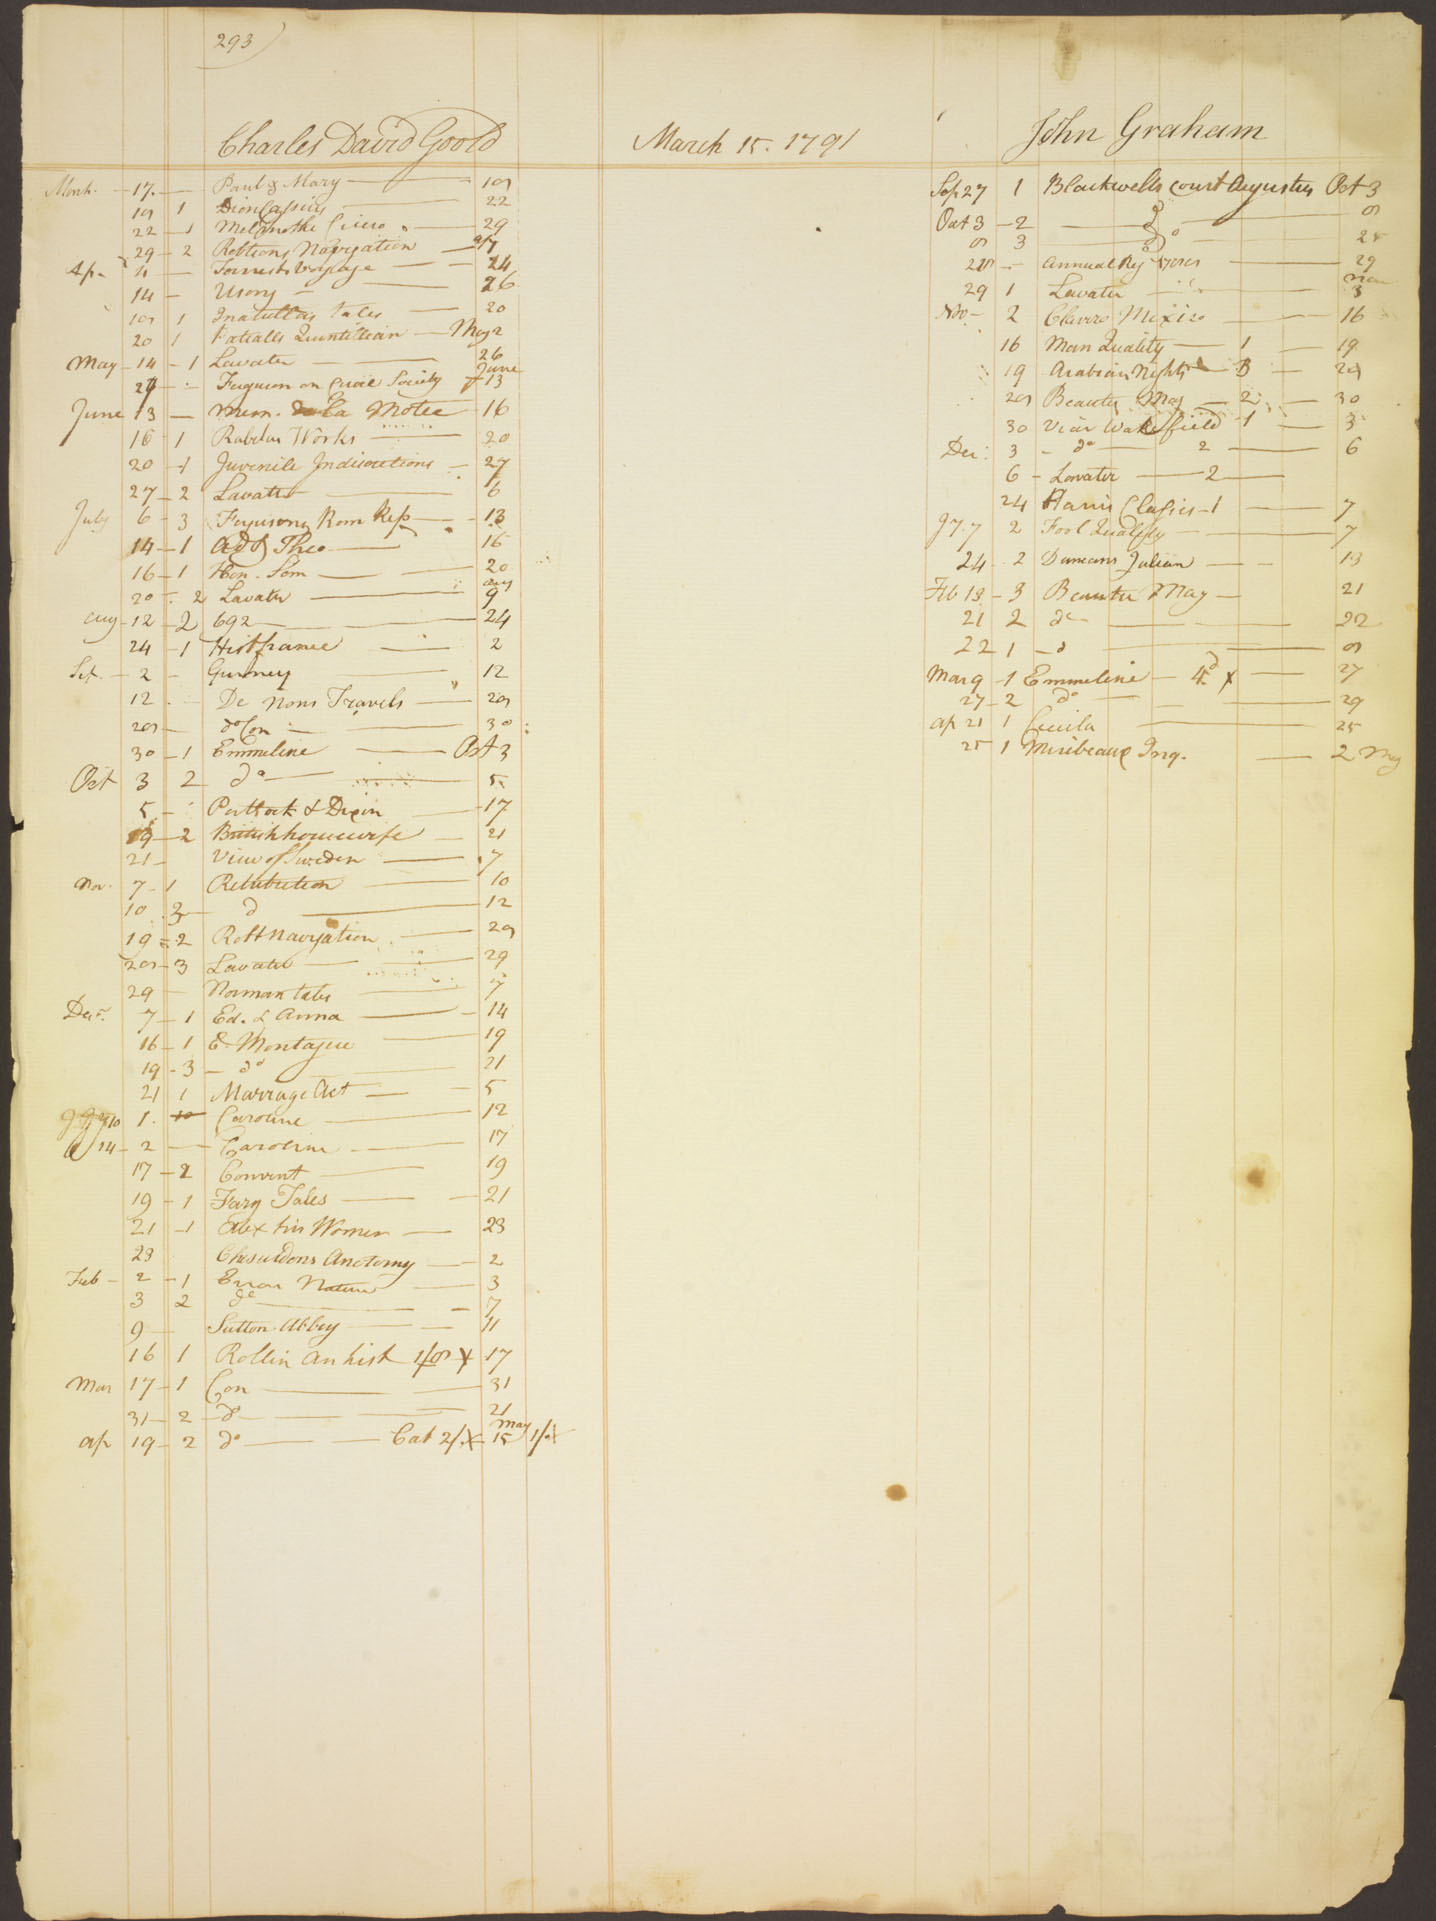 293
Charles David Goold
March 15. 1791
March - 17. - Paul & Mary - 19
19 1 Dion Cassius 22
22 - 1 Melmoths Cicero - 29
29 - 2 Robtsons Navigation
Ap. 11 - Forrests Voyage - 24
14 - Usong - 26
19 1 Inatullas Tales - 20
20 1 Patsalls Quintillian - May 2
May - 14 - 1 Lavater - 26
Ferguson on Civil Society June 13
June 13 - Mem. De La Motte - 16
16 1 Rabelas Works - 20
20 - 1 Juvenile Indiscretions - 27
27 - 2 Lavater - 6
July 6 - 3 Fergusons Rom Rep - 13
14 - 1 Ad & Theo - 16
16 - 1 Hen. Som - 20
20 - 2 Lavater - Aug 9
Aug - 12 - 2 692 - 24
24 - 1 Hist france - 2
Sep. - 2 - Gurney - 12
12 - De Nons Travels - 29
29 - do Con - 30
30 - 1 Emmeline - Oct 3
Oct 3 2 do - 5
5 - Portlock & Dixon - 17
19 - 2 British housewife - 21
21 - View of Sweden - 7
Nov. 7 - 1 Retribution - 10
10 3 - d - 12
19 - 2 Robt Navigation - 29
3 Lavater - 29
29 - Norman tales - 7
Decr. 7 - 1 Ed. & Anna - 14
16 - 1 E. Montague - 19
19 - 3 - do - 21
21 1 Marriage Act - 5
1. Caroline - 12
14 - 2 - Caroline - 17
17 - 2 Convent - 19
19 - 1 Fary Tales - 21
21 - 1 Alex his Women - 23
23 Cheseldons Anatomy - 2
Feb - 2 - 1 Error Nature - 3
3 2 do - 7
9 - Sutton Abbey - 11
16 1 Rollin an hist 17
Mar 17 - 1 Con - 31
31 - 2 - do - 21
Ap 19 - 2 do - Cat 2/. X May 15
John Graham
Sep 27 1 Blackwells court Augustus Oct 3
Oct 3 - 2 - do
3 do
Annual Reg - 29
29 1 Lavater - Nov 3
Nov - 2 Clavero Mexico - 16
16 Man Quality - 1 - 19
19 Arabian Nights - 3 - 29
29 Beautis Mag - 2 - 30
30 Vicar Wakefield - 1 - 3
Dec: 3 - do - 2 - 6
6 - Lavater - 2 -
24 Harris Classics - 1 - 7
7 2 Fool Quality - 7
24 2 Duncans Julian - 13
Feb 13 - 3 Beautis Mag - 21
21 2 do - 22
22 1 - d
Mar 9 - 1 Emmeline - 4d X - 27
27 - 2 do - 29
Ap 21 1 Cecila - 25
25 1 Miribeaux Inq. - 2 May